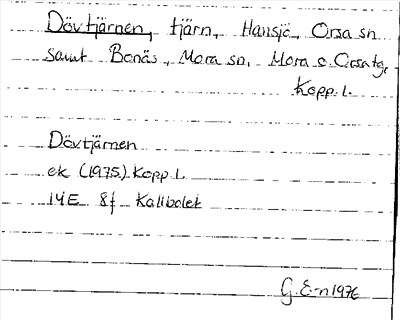 Dövtjärnen, tjärn, Hansjö, Orsa sn
samt Bonäs, Mora sn, Mora o. Orsa tg,
Kopp. l.
Dövtjärnen
ek (1975) Kopp l.
14E 8f Kallbolet
G. E-n 1976